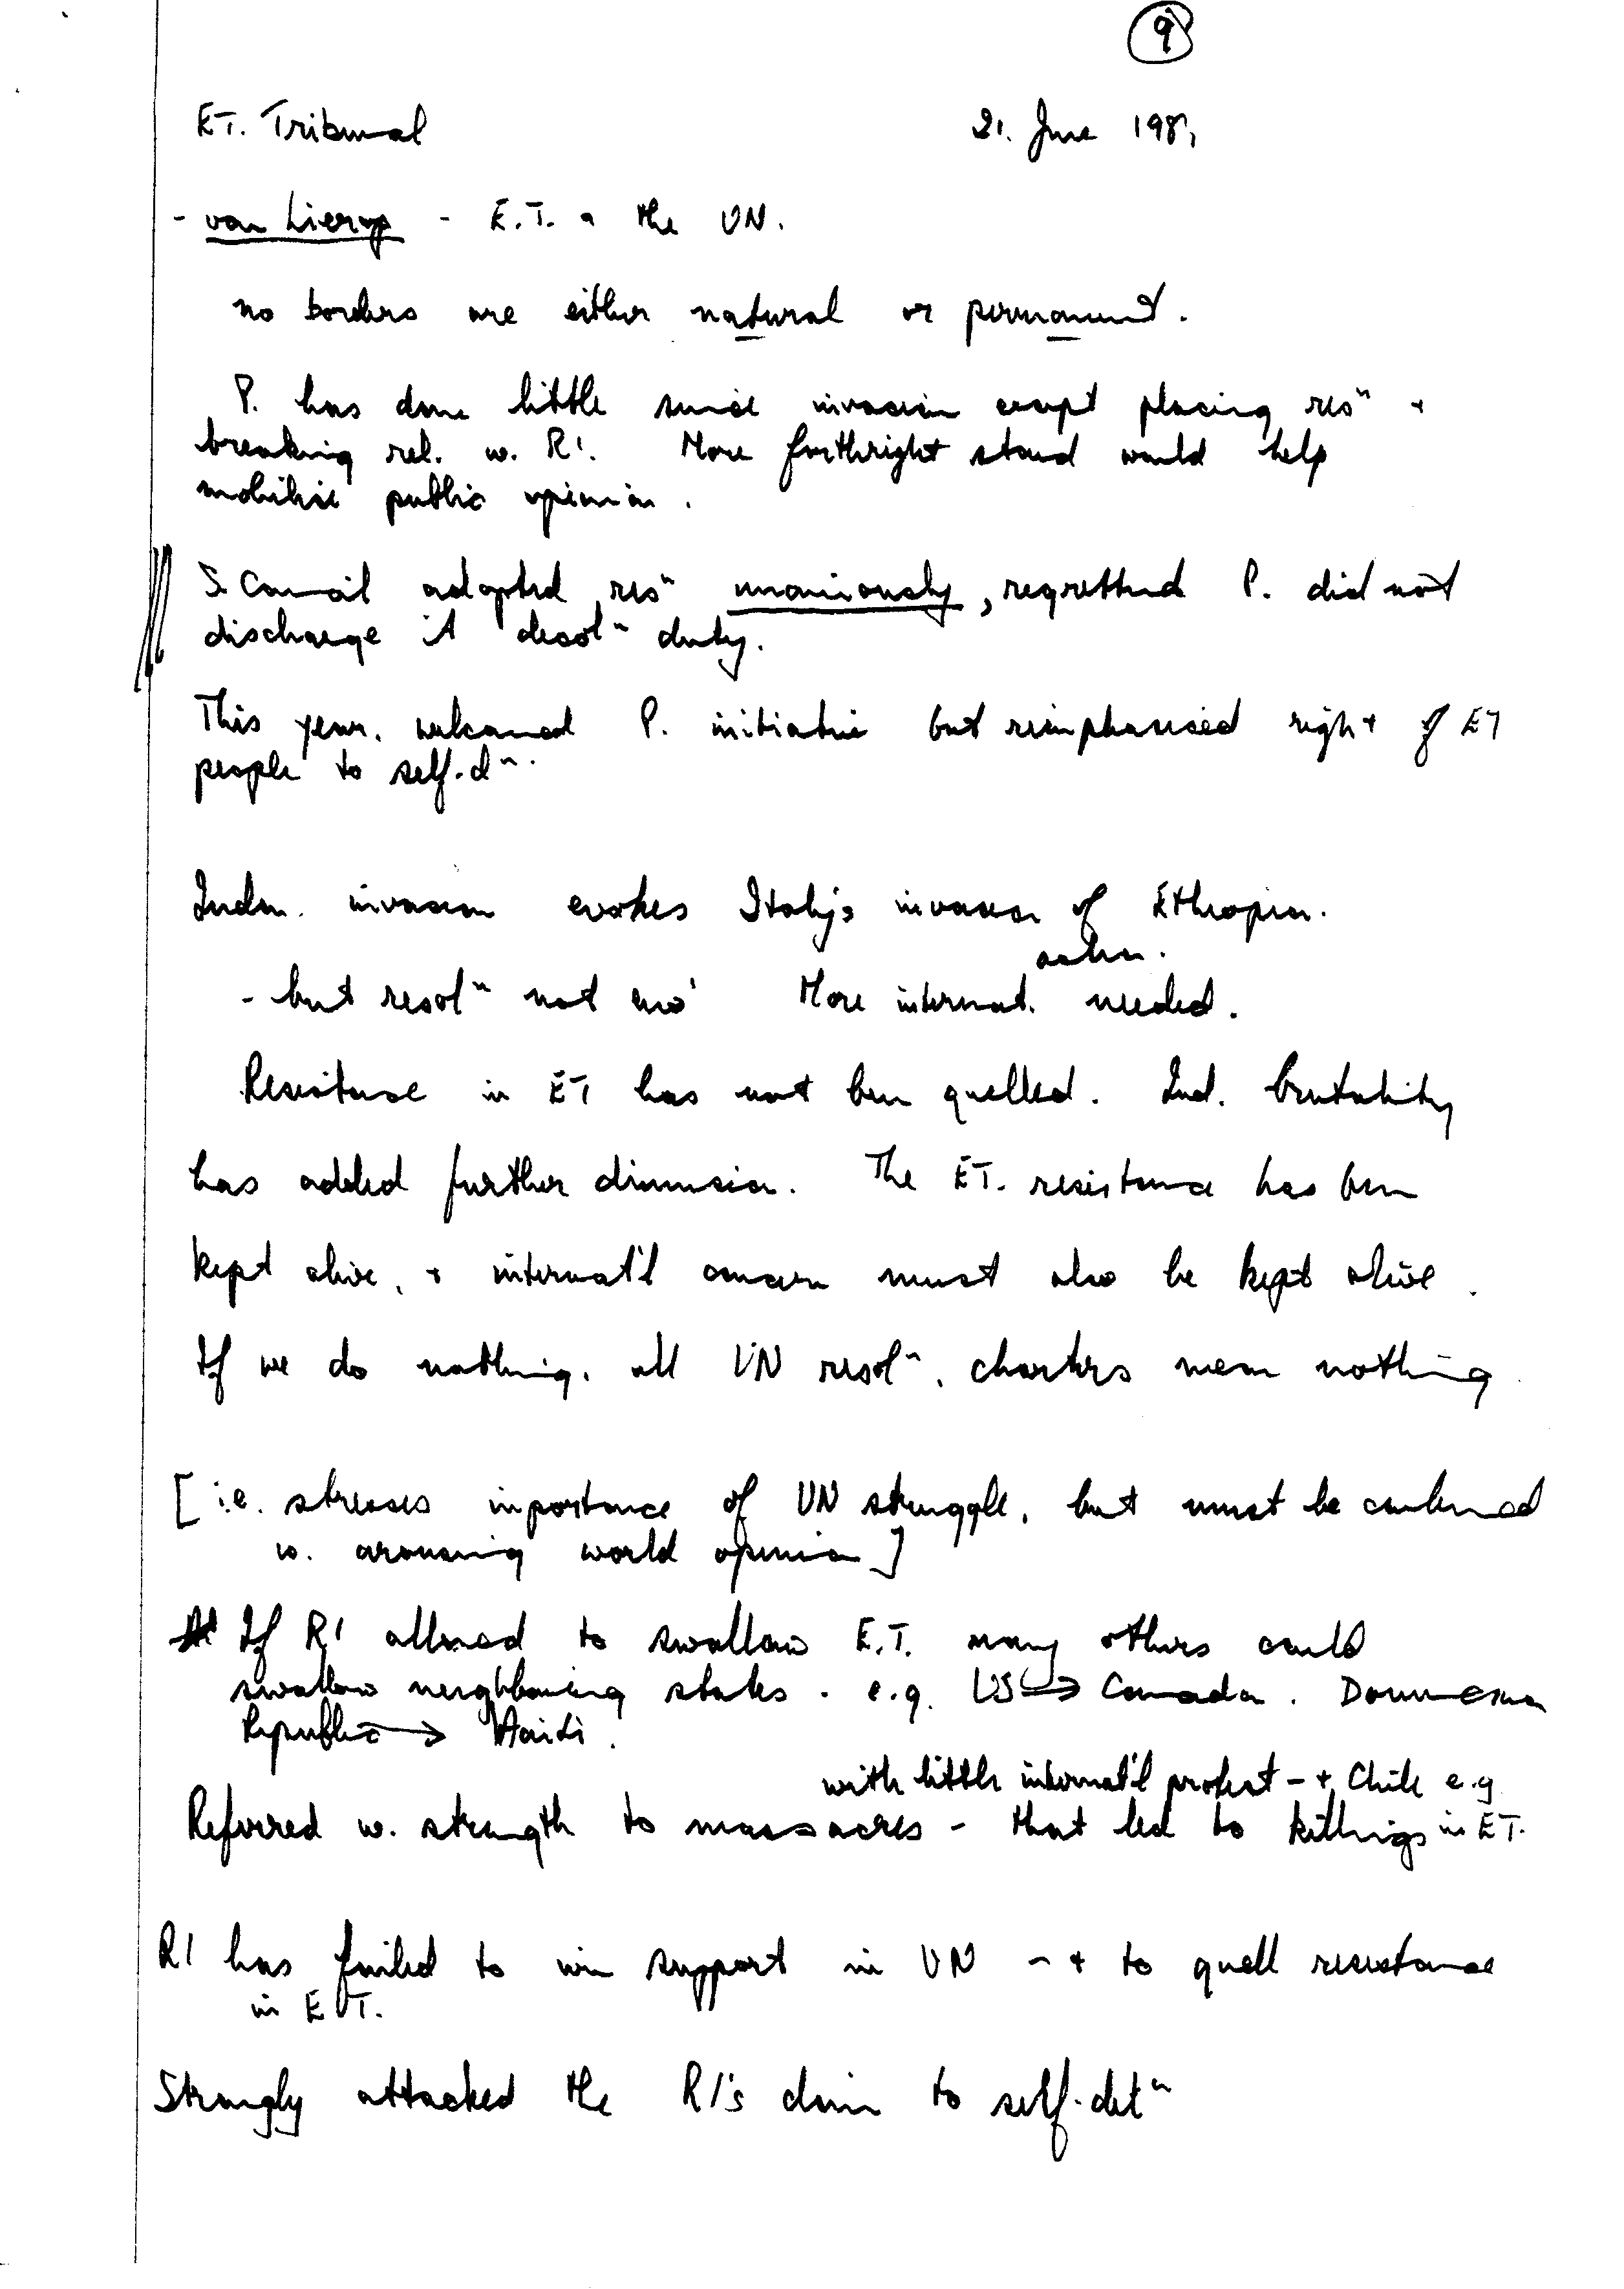 9
ET. Tribunal 21. June 1981
- van Lierop - E.T. & the UN.
no borders are either natural or permanent.
P. has done little since invasion except placing resⁿ +
breaking rel. w. RI. More forthright stand would help
mobilise public opinion.
S. Council adopted resⁿ unaniously, regretted P. did not
discharge it decolⁿ duty.
This year, welcomed P. initiative but reemphasised right of ET
people to self-dⁿ.
Indon. invasion evokes Italy's invasion of Ethiopia.
action.
- but resolⁿ not eno' More internat. needed.
Resistance in ET has not been quelled. Ind. brutality
has added further dimension. The ET. resistance has been
kept alive, + internat'l concern must also be kept alive.
If we do nothing, all UN resolⁿ, charters mean nothing.
[i.e. stresses importance of UN struggle, but must be combined
w. arousing world opinion]
If RI allowed to swallow E.T. many others could
swallow neighbouring states. e.g. US → Canada. Dominican
Republic → Haiti.
with little internat'l protest - + Chile e.g
Referred w. strength to massacres - that led to killings in ET.
RI has failed to win support in UN - + to quell resistance
in ET.
Strongly attacked the RI's claim to self-detⁿ